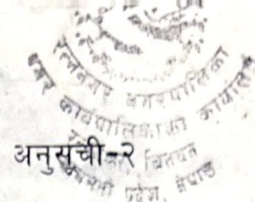 रत्ननगर नगरपालिका
नगर कार्यपालिकाको कार्यालय
अनुसूची-२
चितवन
प्रदेश, नेपाल